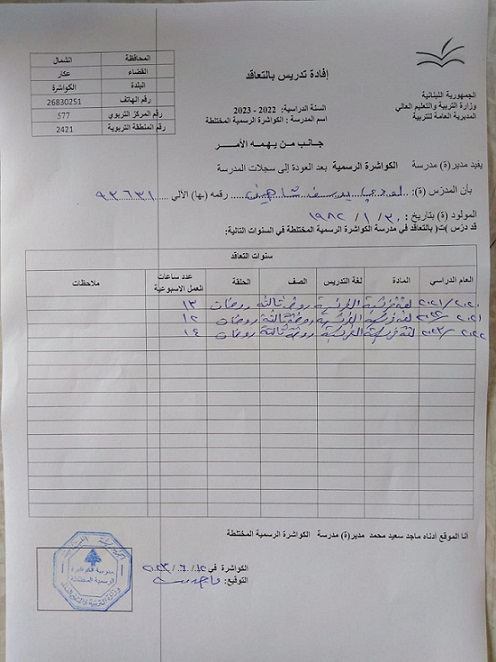 المحافظة الشمال
القضاء عكار
البلدة الكواشرة
رقم الهاتف 26830251
رقم المركز التربوي 577
رقم المنطقة التربوية 2421
إفادة تدريس بالتعاقد
الجمهورية اللبنانية
وزارة التربية والتعليم العالي
المديرية العامة للتربية
السنة الدراسية: 2022 - 2023
اسم المدرسة : الكواشرة الرسمية المختلطة
جانب من يهمه الأمر
يفيد مدير(ة) مدرسة الكواشرة الرسمية بعد العودة إلى سجلات المدرسة
بأن المدرّس (ة): يوسف شاهين رقمه (ها) الآلي ٩٣٦٣١
المولود (ة) بتاريخ : ٣٠ / ١ / ١٩٨٢
قد درّس (ت) بالتعاقد في مدرسة الكواشرة الرسمية المختلطة في السنوات التالية:
سنوات التعاقد
العام الدراسي المادة لغة التدريس الصف الحلقة عدد ساعات العمل الاسبوعية ملاحظات
٢٠٢٠/٢٠٢١ لغة فرنسية الفرنسية روضة ثالثة روضات ١٣
٢٠٢١/٢٠٢٢ لغة فرنسية الفرنسية روضة ثالثة روضات ١٢
٢٠٢٢/٢٠٢٣ لغة فرنسية الفرنسية روضة ثالثة روضات ١٤
أنا الموقع أدناه ماجد سعيد محمد مدير(ة) مدرسة الكواشرة الرسمية المختلطة
الكواشرة في ٢٠٢٣/٦/
التوقيع:
مدرسة الكواشرة
الرسمية المختلطة